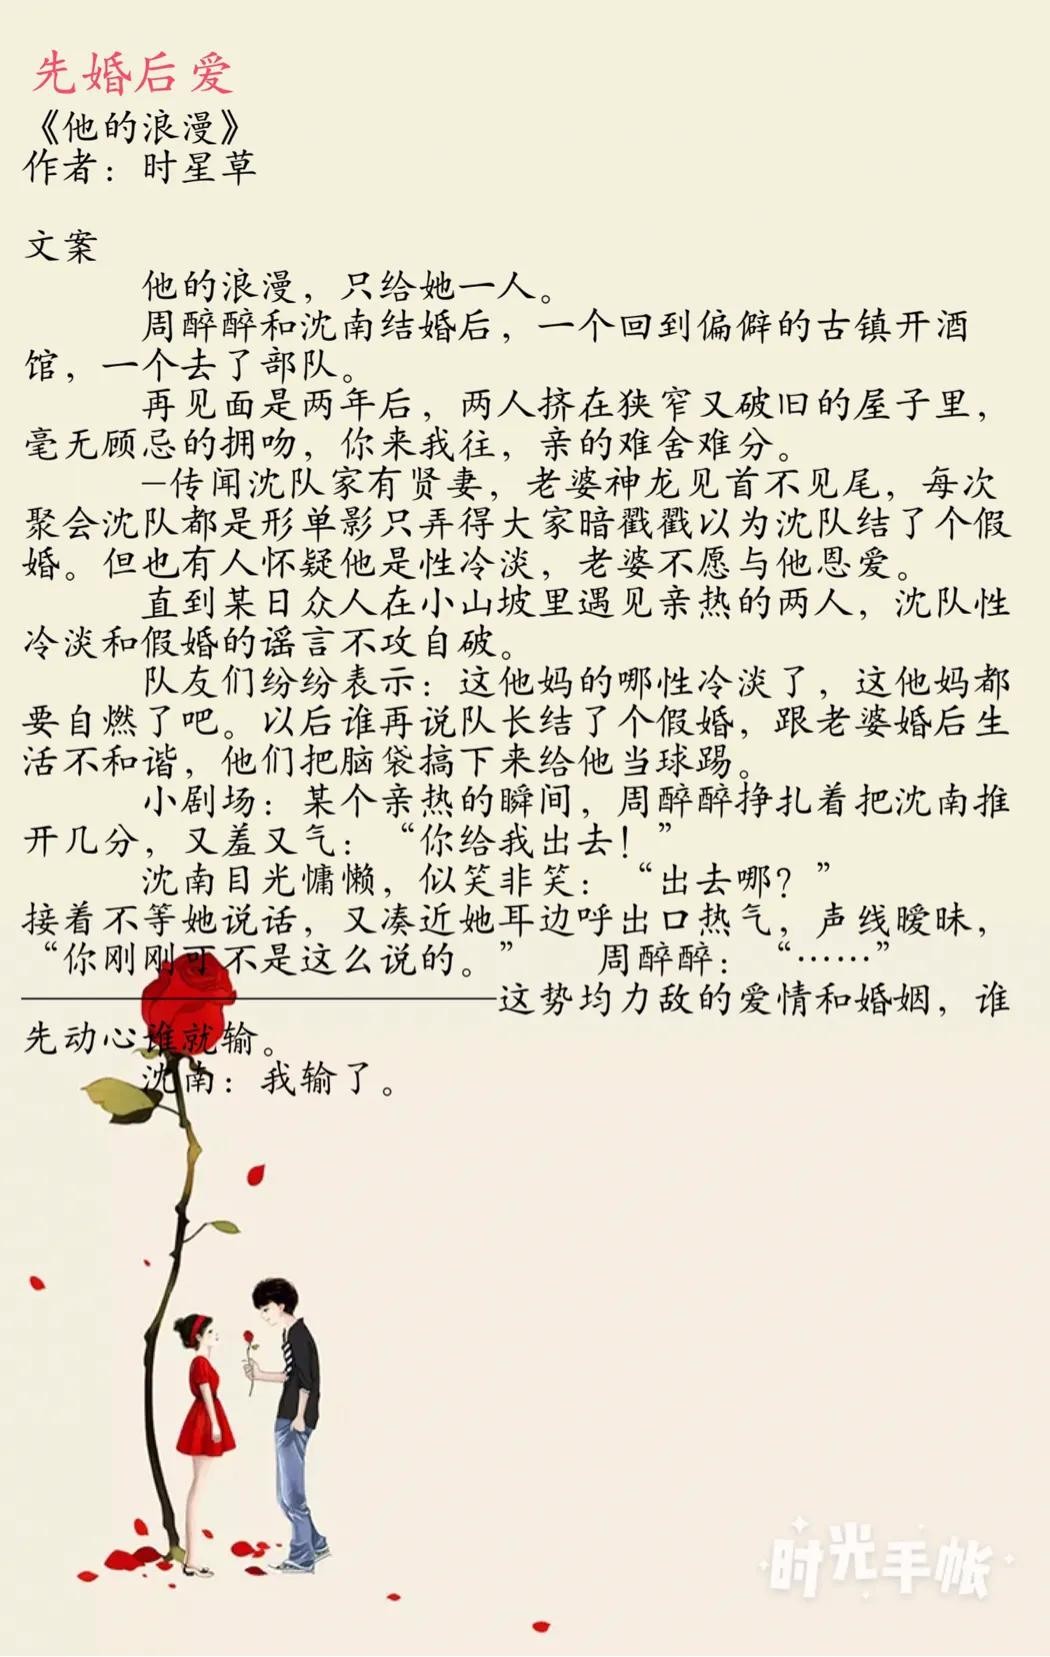 先婚后爱
《他的浪漫》
作者：时星草
文案
他的浪漫，只给她一人。
周醉醉和沈南结婚后，一个回到偏僻的古镇开酒
馆，一个去了部队。
再见面是两年后，两人挤在狭窄又破旧的屋子里，
毫无顾忌的拥吻，你来我往，亲的难舍难分。
—传闻沈队家有贤妻，老婆神龙见首不见尾，每次
聚会沈队都是形单影只弄得大家暗戳戳以为沈队结了个假
婚。但也有人怀疑他是性冷淡，老婆不愿与他恩爱。
直到某日众人在小山坡里遇见亲热的两人，沈队性
冷淡和假婚的谣言不攻自破。
队友们纷纷表示：这他妈的哪性冷淡了，这他妈都
要自燃了吧。以后谁再说队长结了个假婚，跟老婆婚后生
活不和谐，他们把脑袋搞下来给他当球踢。
小剧场：某个亲热的瞬间，周醉醉挣扎着把沈南推
开几分，又羞又气：“你给我出去！”
沈南目光慵懒，似笑非笑：“出去哪？”
接着不等她说话，又凑近她耳边呼出口热气，声线暧昧，
“你刚刚可不是这么说的。” 周醉醉：“……”
————————————这势均力敌的爱情和婚姻，谁
先动心谁就输。
沈南：我输了。
时光手帐